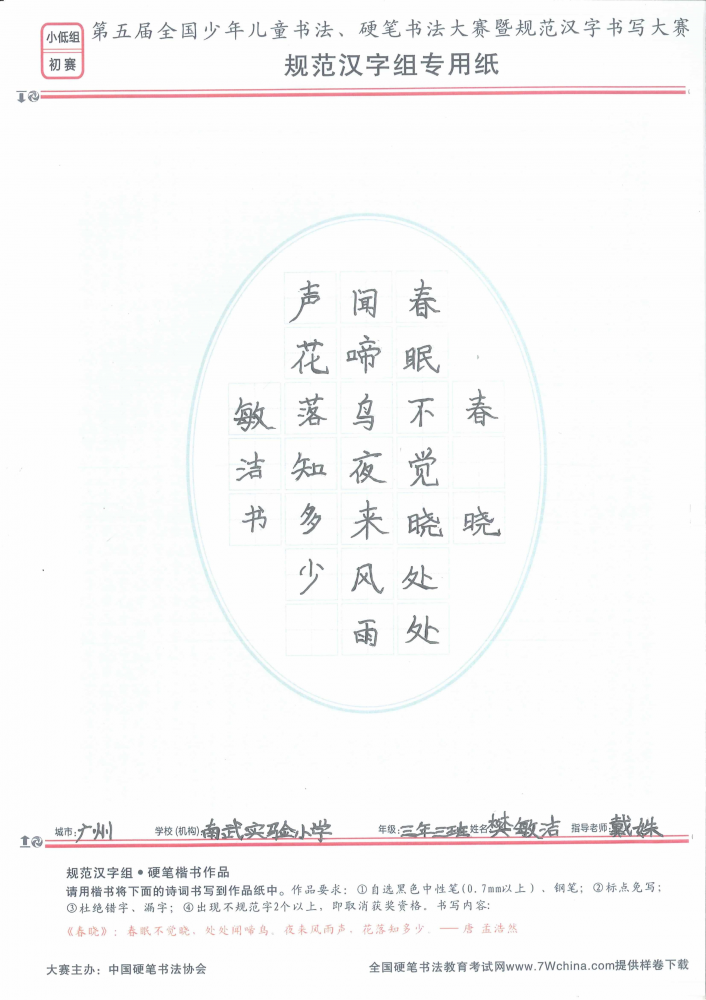 小低组
初赛
第五届全国少年儿童书法、硬笔书法大赛暨规范汉字书写大赛
规范汉字组专用纸
春晓
春眠不觉晓处处
闻啼鸟夜来风雨
声花落知多少
敏洁书
城市:广州 学校(机构):南武实验小学 年级:三年三班 姓名:樊敏洁 指导老师:戴姝
规范汉字组•硬笔楷书作品
请用楷书将下面的诗词书写到作品纸中。作品要求:①自选黑色中性笔(0.7mm以上)、钢笔;②标点免写;
③杜绝错字、漏字;④出现不规范字2个以上,即取消获奖资格。书写内容:
《春晓》:春眠不觉晓,处处闻啼鸟。夜来风雨声,花落知多少。——唐 孟浩然
大赛主办:中国硬笔书法协会
全国硬笔书法教育考试网www.7Wchina.com提供样卷下载